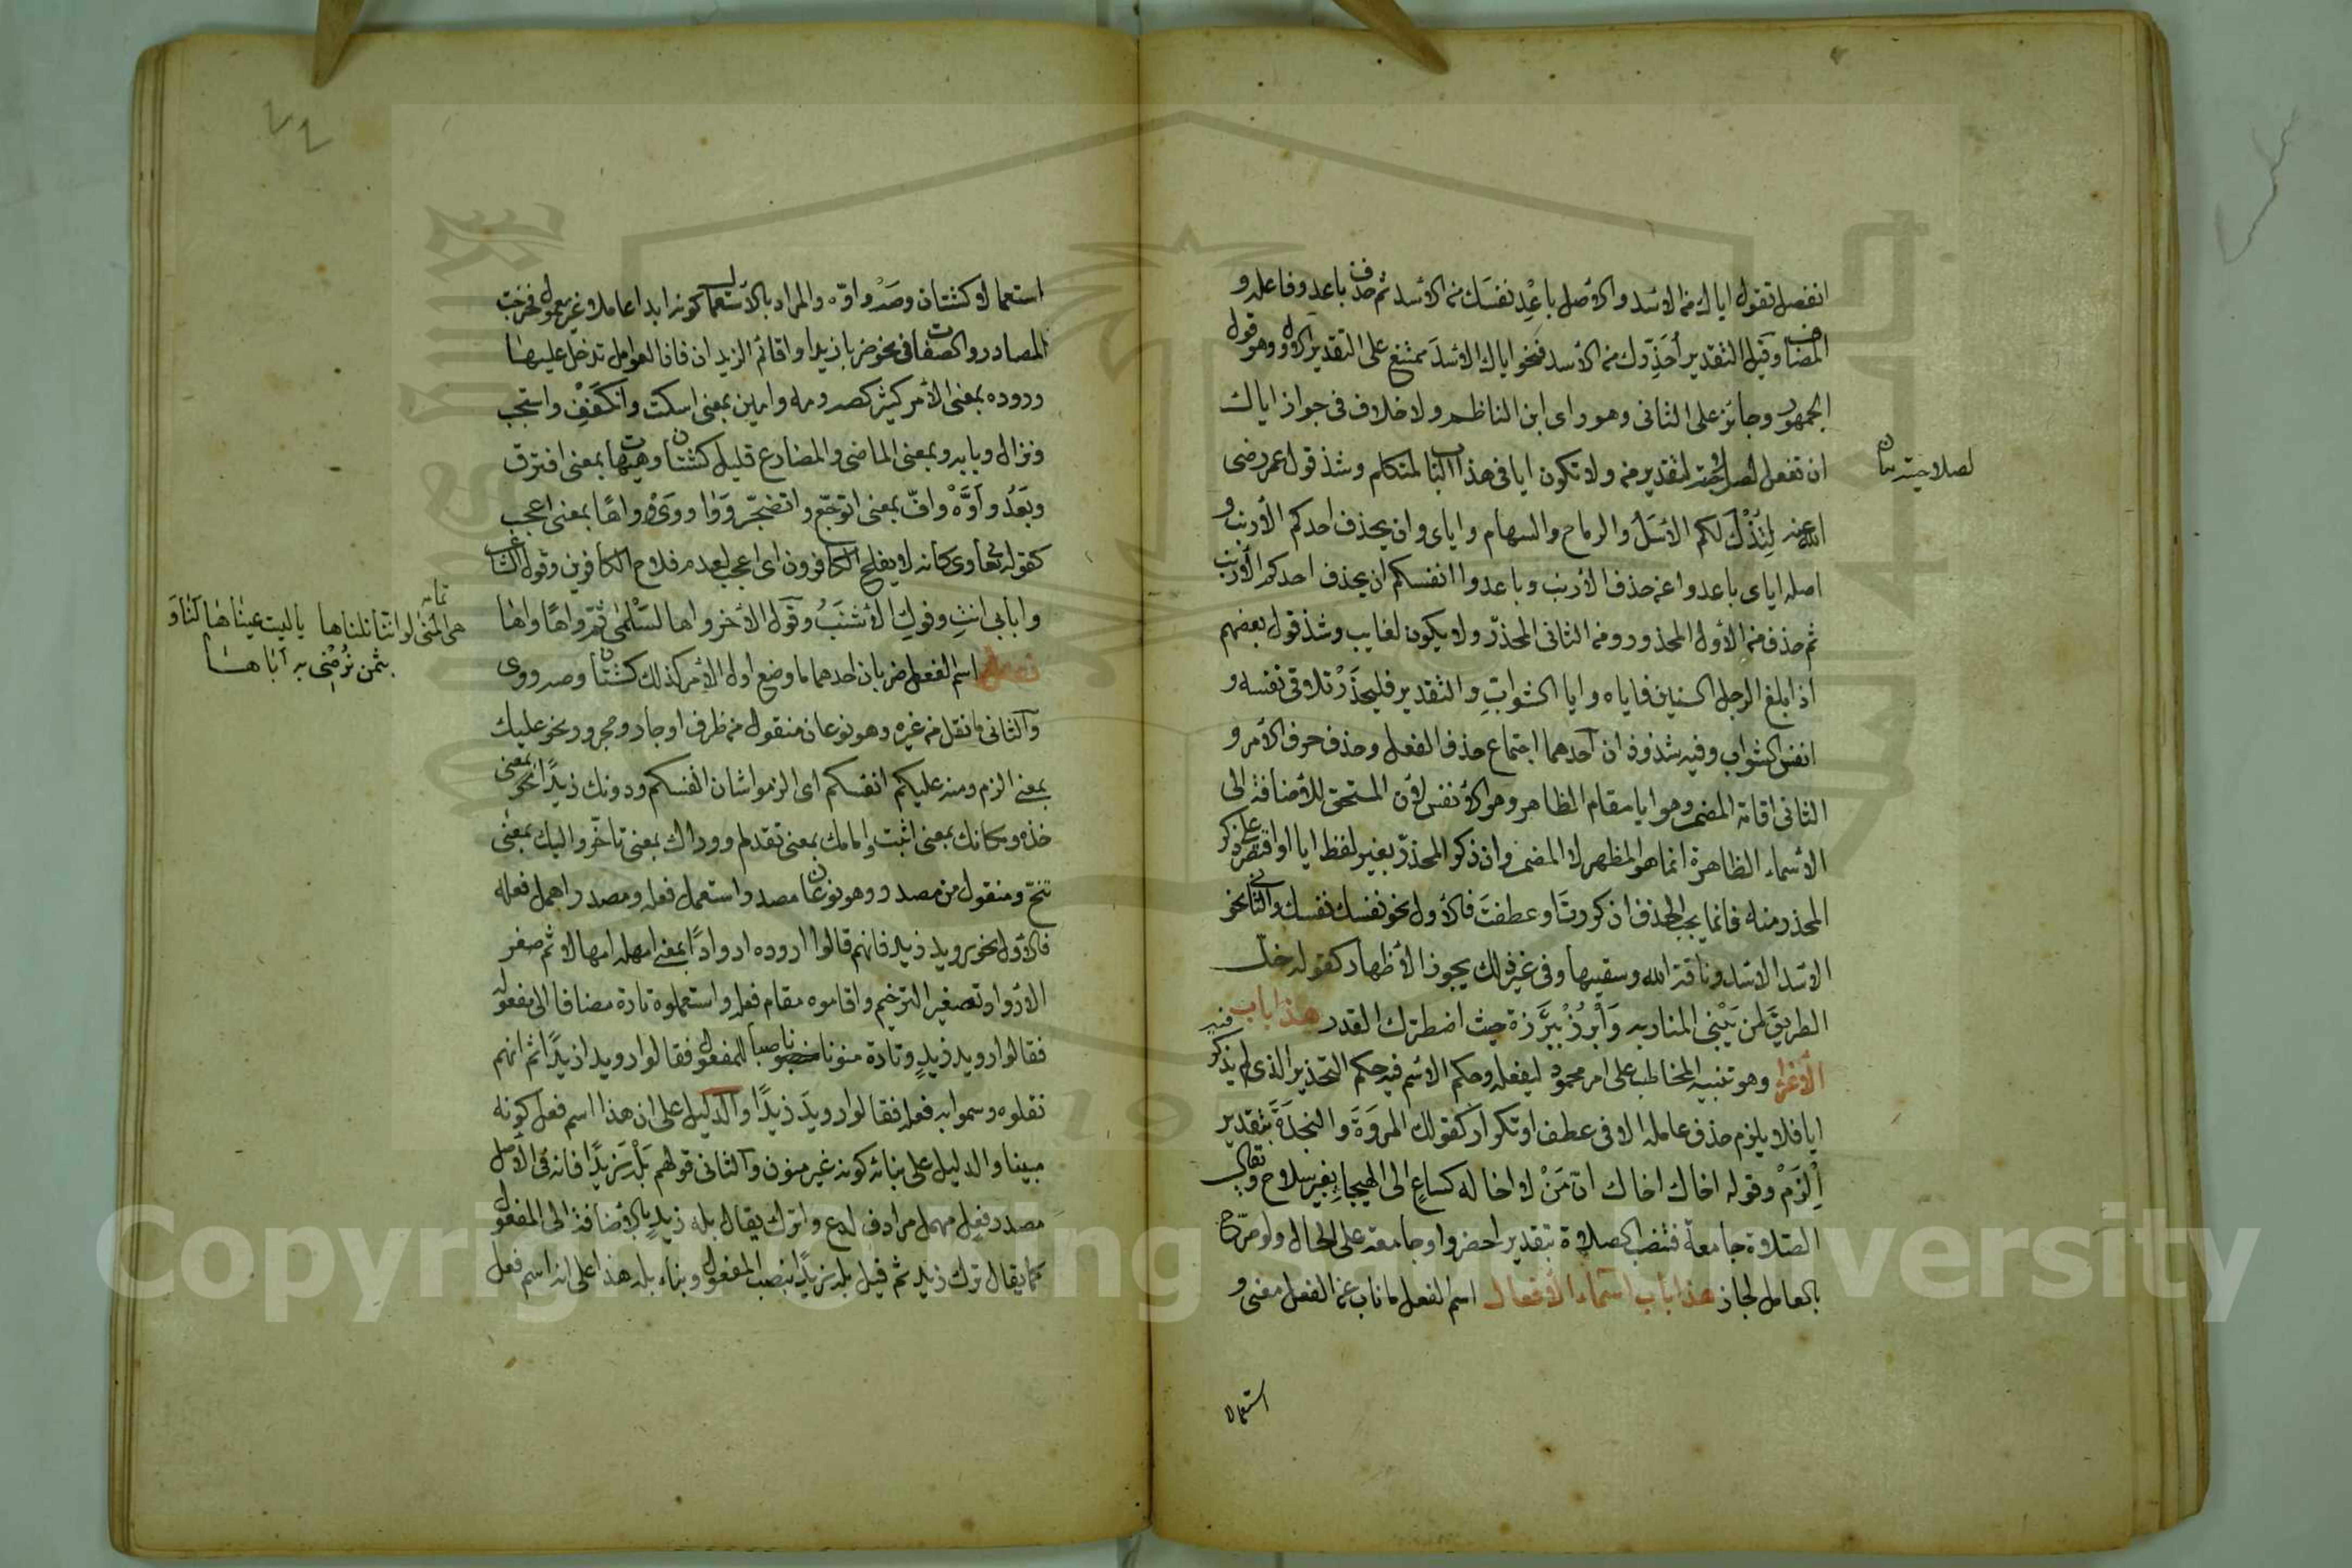 انفصل تقول اياك من الاسد والاصل باعد نفسك من الاسد ثم حذف باعد وفاعله و
المضاف وقيل التقدير أحذرك من الاسد فنحو اياك الاسد ممتنع على التقدير الاول وهو قول
الجمهور وجائز على الثانى وهو راى ابن الناظم ولا خلاف فى جواز اياك
ان تفعل لصلاحيته لتقدير من ولا تكون ايا فى هذا الباب لمتكلم وشذ قول عمر رضى
لصلاحيته
الله عنه لتذك لكم الاسل والرماح والسهام واياى وان يحذف احدكم الارنب و
اصله اياى باعدوا عن حذف الارنب وباعدوا انفسكم ان يحذف احدكم الارنب
ثم حذف من الاول المحذور ومن الثانى المحذر ولا يكون لغايب وشذ قول بعضهم
اذا بلغ الرجل الستين فاياه وايا الشواب والتقدير فليحذر تلاقى نفسه و
انفس الشواب وفيه شذوذان احدهما اجتماع حذف الفعل وحذف حرف الامر و
الثانى اقامة المضمر وهو ايا مقام الظاهر وهو الانفس لان المستحق للاضافة الى
الاسماء الظاهرة انما هو المظهر لا المضمر وان ذكر المحذر بغير لفظ ايا او اقتصر على ذكر
المحذر منه فانما يجب الحذف ان كررت او عطفت فالاول نحو نفسك نفسك والثانى نحو
الاسد الاسد وناقة الله وسقيها وفى غير ذلك يجوز الاظهار كقوله خل
الطريق لمن يبنى المنار به وَابْرُزْ ببَرْزة حيث اضطرك القدر هذا باب
الاغراء وهو تنبيه المخاطب على امر محمود ليفعله وحكم الاسم فيه حكم التحذير الذى لم يذكر فيه
ايا فلا يلزم حذف عامله الا فى عطف او تكرار كقولك المروَةَ والنجدَةَ بتقدير
اِلْزَمْ وقوله اخاك اخاك انّ مَنْ لا اخا له كساعٍ الى الهيجا بغير سلاح ويقال
الصلاة جامعة فتنصب الصلاة بتقدير احضروا وجامعة على الحال ولو صرح
بالعامل لجاز هذا باب اسماء الافعال اسم الفعل ما ناب عن الفعل معنى و
استعمالا
استعمالا كشتان وصَهْ واوّه والمراد بالاستعمال كونه ابدا عاملا غير معمول فخرجت
المصادر والصفات فى نحو ضربا زيدا واقائم الزيدان فان العوامل تدخل عليها
وروده بمعنى الامر كثير كصه ومه وامين بمعنى اسكت وانكفف واستجب
ونزال وبابه وبمعنى الماضى والمضارع قليل كشتان وهيهات بمعنى افترق
وبَعُدَ وأوَّهْ وافّ بمعنى اتوجّع واتضجّر ووا ووَىْ وواهًا بمعنى اعجب
كقوله تعا وى كانه لا يفلح الكافرون اى اعجب لعدم فلاح الكافرين وقول الشاعر
وا بابى انتِ وفوكِ الاشنَبُ وقول الاخر واها لسَلْمى ثم واهًا واها
تمامه
هى المنى لو اننا نلناها ياليت عيناها لنا و
بثمن نُرْضى به اباها
فصل اسم الفعل ضربان احدهما ما وضع اول الامر كذلك كشتان وصه ووى
والثانى ما نقل من غيره وهو نوعان منقول من ظرف او جار ومجرور نحو عليك
بمعنى الزم ومنه عليكم انفسكم اى الزموا شان انفسكم ودونك زيدًا بمعنى
خذه ومكانك بمعنى اثبت وامامك بمعنى تقدم ووراك بمعنى تاخّر واليك بمعنى
تنح ومنقول من مصدر وهو نوعان مصدر استعمل فعله ومصدر اهمل فعله
فالاول نحو رويد زيد فانهم قالوا اروده اروادًا بمعنى امهله امهالا ثم صغر
الارواد تصغير الترخيم واقاموه مقام فعله واستعملوه تارة مضافا الى مفعوله
فقالوا رويد زيدٍ وتارة منونا ناصبا للمفعول فقالوا رويدا زيدًا ثم انهم
نقلوه وسموا به فعله فقالوا رويدَ زيدًا والدليل على ان هذا اسم فعل كونه
مبينا والدليل على بنائه كونه غير منون والثانى قولهم بَلْهَ زيدًا فانه فى الاصل
مصدر فعلٍ مهمل مرادف لدع واترك يقال بله زيدٍ بالاضافة الى المفعول
كما يقال ترك زيد ثم قيل بله زيدًا بنصب المفعول وبناء بله هذا على انه اسم فعل
Copyright © King Saud University